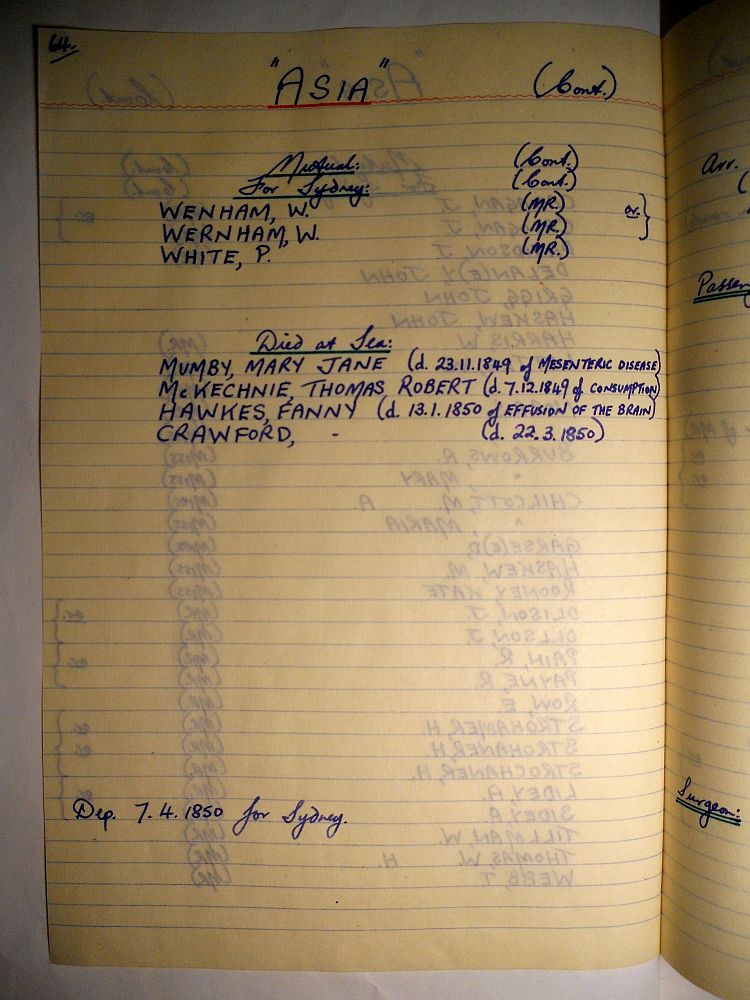 64.
"ASIA" (Cont.)
(Cont.)
For Sydney: (Cont.)
WENHAM, W. (MR.) or. }
WERNHAM, W. (MR.)
WHITE, P. (MR.)
Died at Sea:
MUMBY, MARY JANE (d. 23.11.1849 of MESENTERIC DISEASE)
McKECHNIE, THOMAS ROBERT (d. 7.12.1849 of CONSUMPTION)
HAWKES, FANNY (d. 13.1.1850 of EFFUSION OF THE BRAIN)
CRAWFORD, - (d. 22.3.1850)
Dep. 7.4.1850 for Sydney.
Arr.
Passen
Surgeon: